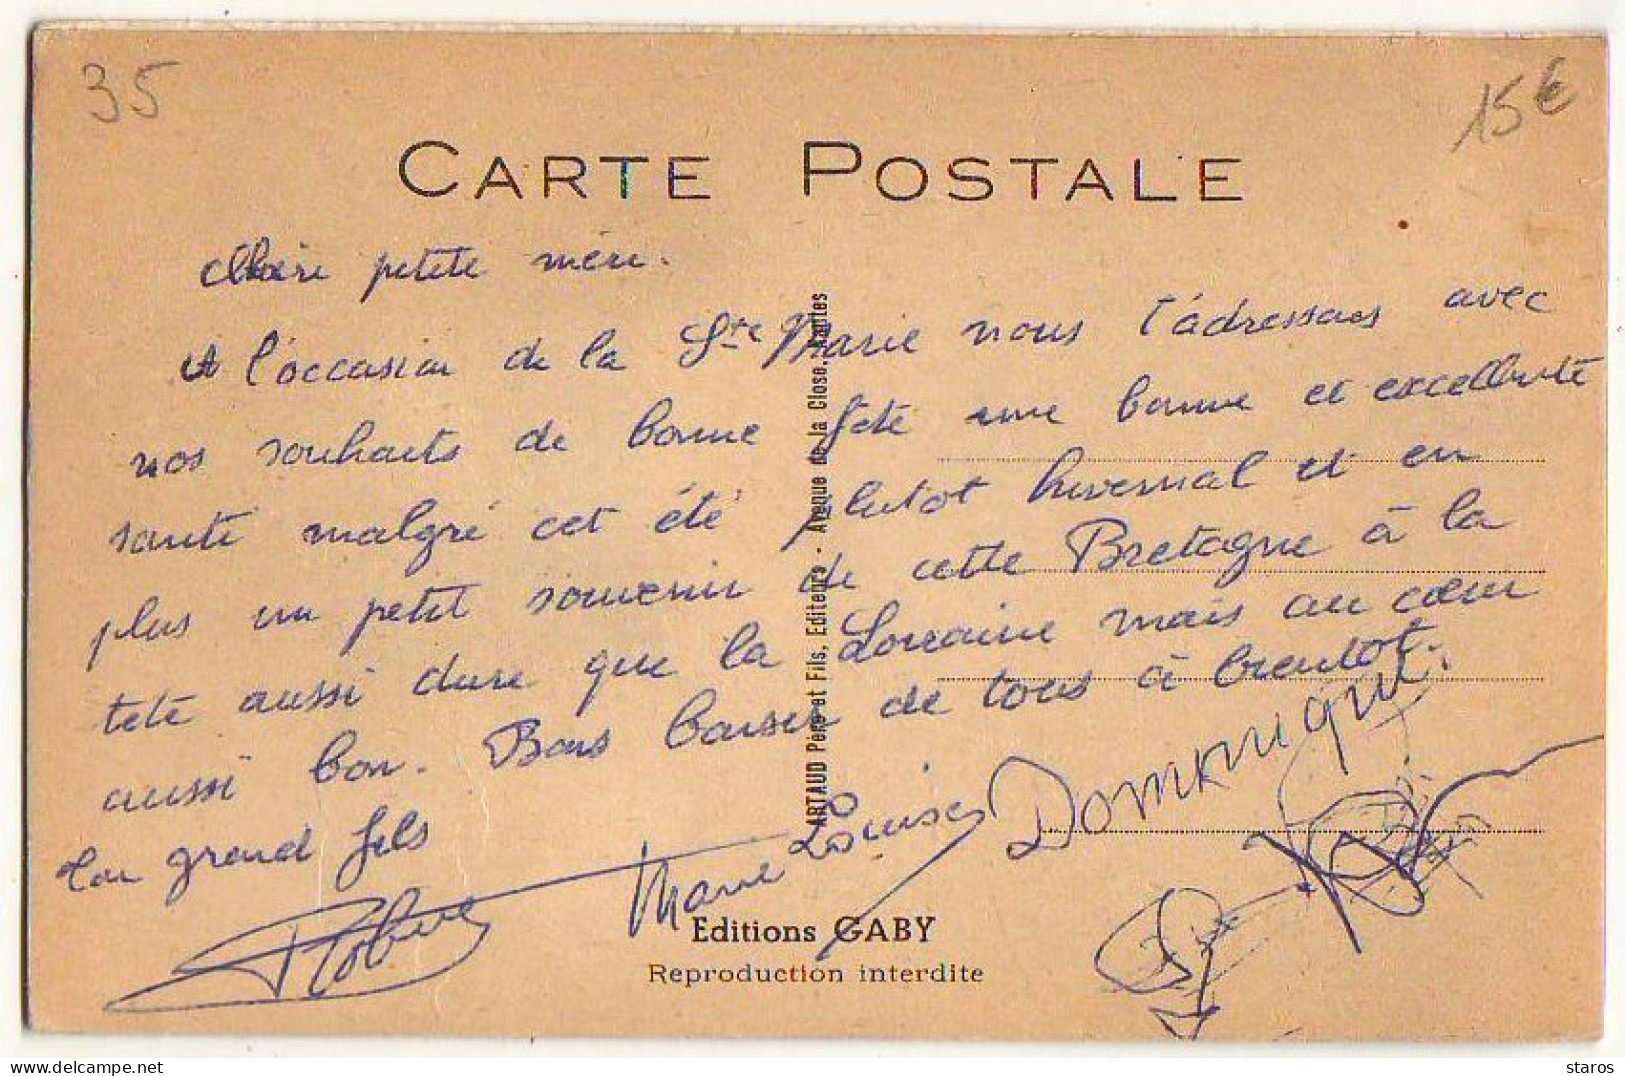 35
15€
CARTE POSTALE
Chère petite mère.
A l'occasion de la Ste Marie nous t'adressons avec
nos souhaits de bonne fête une bonne et excellente
santé malgré cet été plutot hivernal et en
plus un petit souvenir de cette Bretagne à la
tete aussi dure que la Lorraine mais au cœur
aussi bon. Bons baisers de tous à bientot.
Ton grand fils
Marie Louise Dominique
ARTAUD Père et Fils, Editeurs - Avenue de la Close, Nantes
Editions GABY
Reproduction interdite
staros